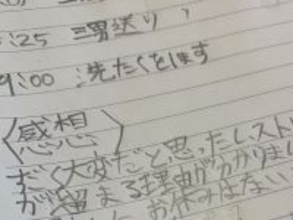 :25 三男送り
9:00 洗たくをします
〈感想〉
大変だと思った。スト
が留まる理由が分かりまし
お休みはない